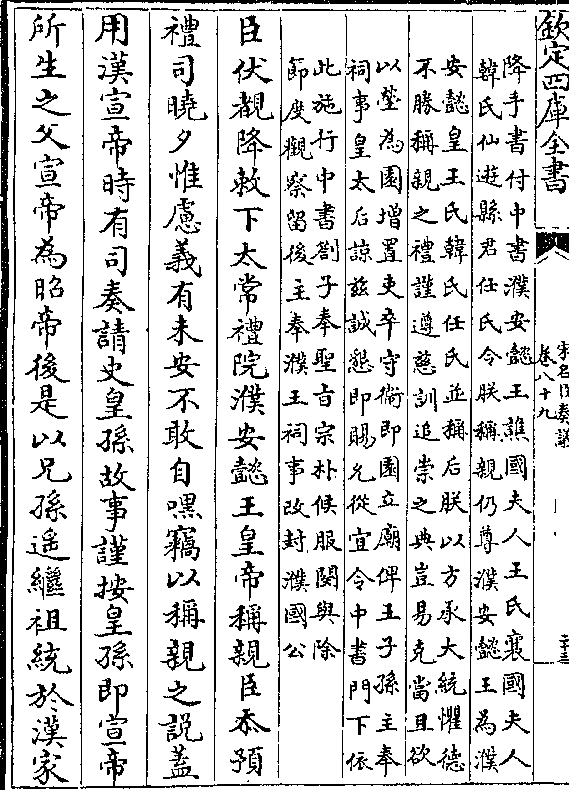 欽定四庫全書
宋名臣奏議
卷八十九
降手書付中書濮安懿王譙國夫人王氏襄國夫人
韓氏仙遊縣君任氏令朕稱親仍尊濮安懿王為濮
安懿皇王氏韓氏任氏並稱后朕以方承大統懼德
不勝稱親之禮謹遵慈訓追崇之典豈易克當且欲
以塋為園增置吏卒守衛即園立廟俾王子孫主奉
祠事皇太后諒兹誠懇即賜允從宜令中書門下依
此施行中書劄子奉聖旨宗朴候服闋與除
節度觀察留後主奉濮王祠事改封濮國公
臣伏覩降敕下太常禮院濮安懿王皇帝稱親臣忝預
禮司曉夕惟慮義有未安不敢自嘿竊以稱親之說蓋
用漢宣帝時有司奏請史皇孫故事謹按皇孫即宣帝
所生之父宣帝為昭帝後是以兄孫遥繼祖統於漢家